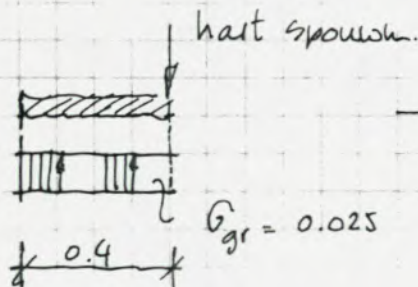 hart spouwm.
σgr = 0.025
0.4